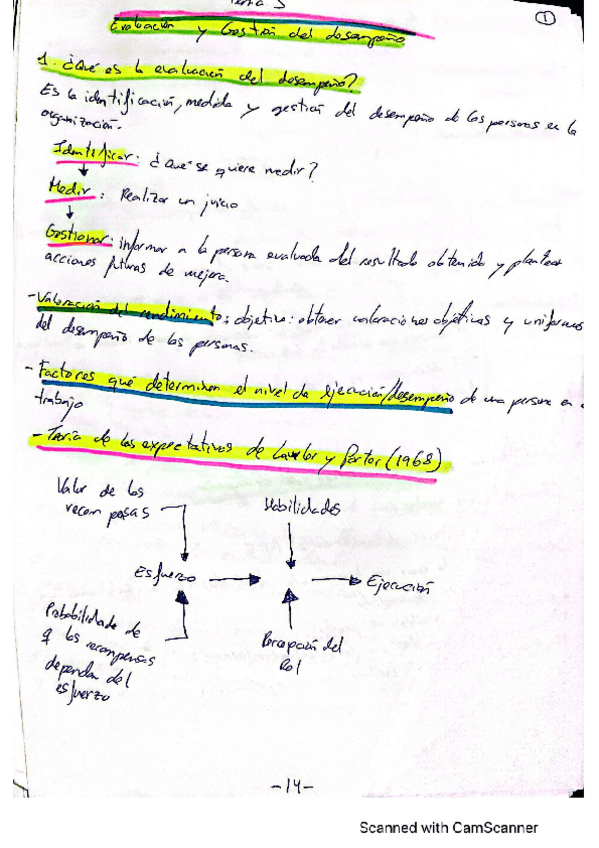 Tema 5
①
Evaluación y Gestión del desempeño
1. ¿Qué es la evaluación del desempeño?
Es la identificación, medida y gestión del desempeño de las personas en la
organización.
Identificar: ¿Qué se quiere medir?
Medir: Realizar un juicio
Gestionar: informar a la persona evaluada del resultado obtenido y plantear
acciones futuras de mejora.
-Valoración del rendimiento: objetivo: obtener valoraciones objetivas y uniformes
del desempeño de las personas.
- Factores que determinan el nivel de ejecución/desempeño de una persona en
trabajo
- Teoría de las expectativas de Lawler y Porter (1968)
Valor de las
recompesas
Habilidades
Esfuerzo
Ejecución
Probabilidade de
q las recompensas
dependan del
esfuerzo
Percepción del
Rol
-14-
Scanned with CamScanner